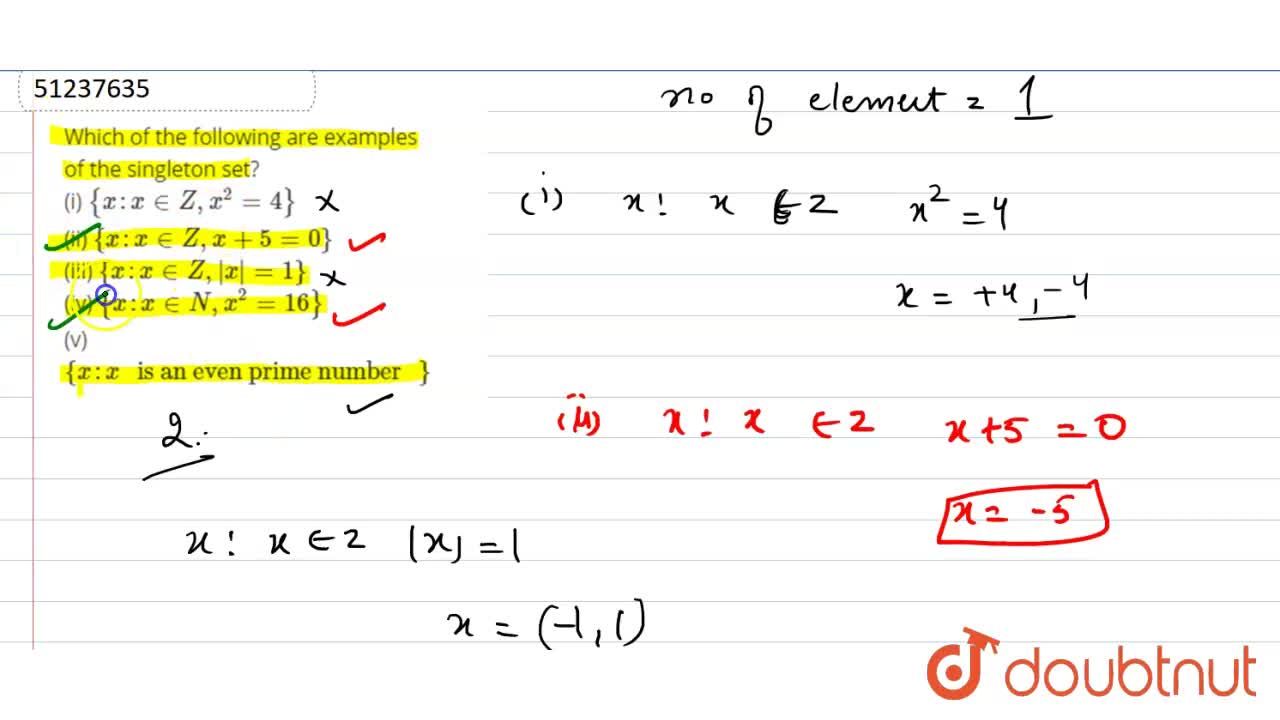 51237635
no of element = 1
Which of the following are examples
of the singleton set?
(i) {x : x ∈ Z, x² = 4} x
(ii) {x : x ∈ Z, x + 5 = 0}
(iii) {x : x ∈ Z, |x| = 1} x
(iv) {x : x ∈ N, x² = 16}
(v)
{x : x is an even prime number }
2.
(i) x : x ∈ Z x² = 4
x = +4, -4
(ii) x : x ∈ Z x+5 = 0
x = -5
x : x ∈ Z |x| = 1
x = (-1, 1)
doubtnut